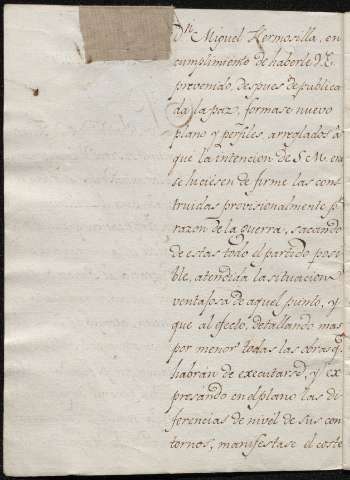 Dn. Miguel Hermosilla, en
cumplimiento de haberle V.E.
prevenido, despues de publica
da la paz, formase nuevo
plano y perfiles arreglados à
que la intencion de S. M. era
se hiciesen de firme las cons
truidas provisionalmente pr.
razon de la guerra, sacando
de estas todo el partido posi
ble, atendida la situacion
ventajosa de aquel punto, y
que al efecto, detallando mas
por menor todas las obras q.
habran de executarse, y ex
presando en el plano las di
ferencias de nivel de sus con
tornos, manifestase el coste